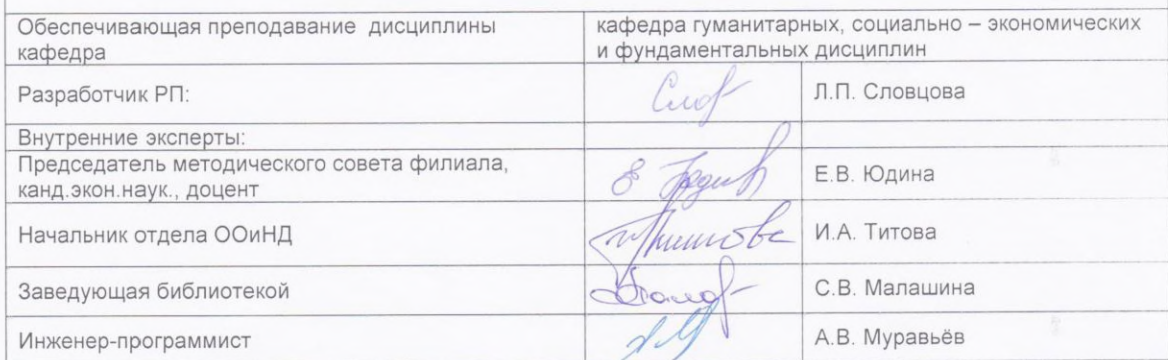 Обеспечивающая преподавание дисциплины
кафедра
кафедра гуманитарных, социально – экономических
и фундаментальных дисциплин
Разработчик РП:
Л.П. Словцова
Внутренние эксперты:
Председатель методического совета филиала,
канд.экон.наук., доцент
Е.В. Юдина
Начальник отдела ООиНД
И.А. Титова
Заведующая библиотекой
С.В. Малашина
Инженер-программист
А.В. Муравьёв